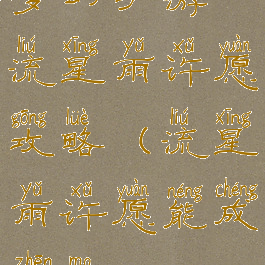 liú xīng yǔ xǔ yuàn
流星雨许愿
gōng lüè liú xīng
攻略(流星
yǔ xǔ yuàn néng chéng
雨许愿能成
zhēn ma